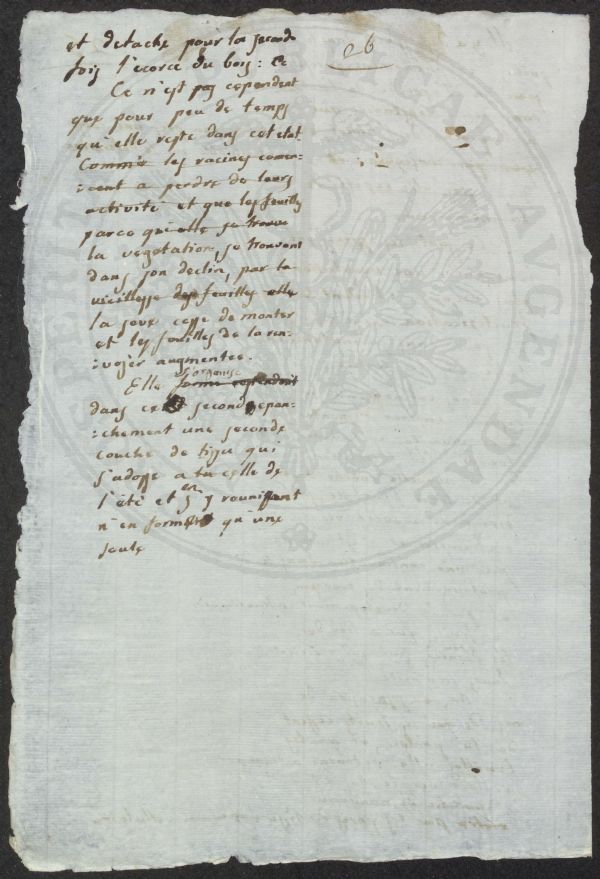 26
et detache pour la seconde
fois l'ecorce du bois: Ce
Ce n'est pas cependent
que pour peu de temps
qu'elle reste dans cet etat
Comme les racines comen-
:cent a perdre de leurs
activité et que les feuilles
parce qu'elle se trouve
la vegetation se trouvent
dans son declin, par la
vieillesse des feuilles elle
la seve cesse de monter
et les feuilles de la ren-
:voÿer augmentee.
s'organise
Elle forme cependent
dans ce second epan-
:chement une seconde
couche de tissu qui
s'adosse a celle de
l'été et en s'y reunissant
n'en forment qu'une
seule